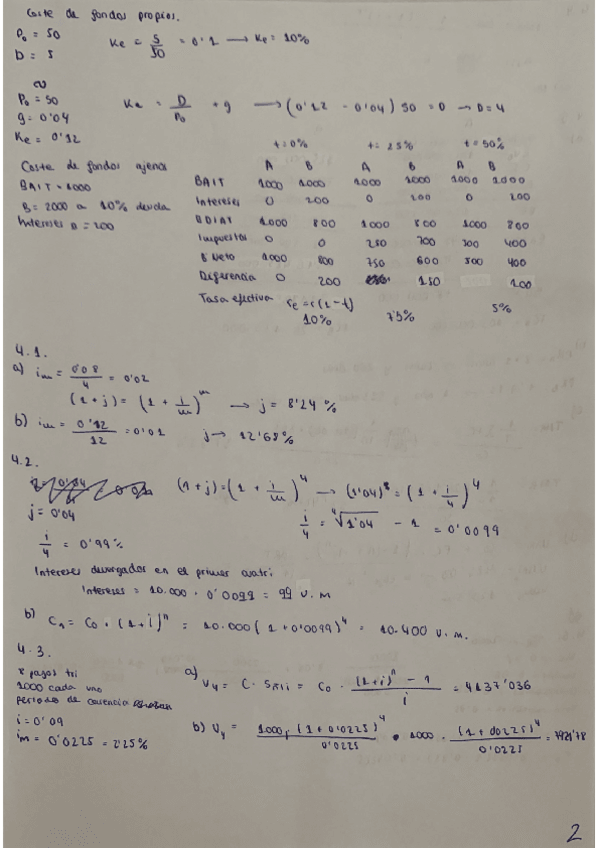 Coste de fondos propios.
P₀ = 50
D = 5
Ke = 5/50 = 0'1 → Ke = 10%
P₀ = 50
g = 0'04
Ke = 0'12
Ke = D/P₀ + g → (0'12 - 0'04) 50 = D → D = 4
t = 0% t = 25% t = 50%
Coste de fondos ajenos
A B A B A B
BAIT = 1000
BAIT 1000 1000 1000 1000 1000 1000
B = 2000 a 10% deuda
Intereses 0 200 0 200 0 200
Intereses D = 200
BDIAT 1000 800 1000 800 1000 800
Impuestos 0 0 250 200 500 400
B Neto 1000 800 750 600 500 400
Diferencia 0 200 150 100
Tasa efectiva re = r(1-t)
10% 7'5% 5%
4.1.
a) im = 0'08/4 = 0'02
(1+j) = (1 + i/m)^m → j = 8'24 %
b) im = 0'12/12 = 0'01 j → 12'68%
4.2.
(1+j) = (1 + i/m)^4 → (1'04)^8 = (1 + i/4)^4
j = 0'04
i/4 = ⁴√1'04 - 1 = 0'0099
i/4 = 0'99%
Intereses devengados en el primer cuatri
Intereses = 10.000 · 0'0099 = 99 u.m
b) Cn = C₀ · (1+i)^n = 10.000 (1 + 0'0099)^4 = 10.400 u.m.
4.3.
pagos tri
1000 cada uno
periodo de carencia
i = 0'09
im = 0'0225 = 2'25%
a) V4 = C · Sn¬i = C₀ · ((1+i)^n - 1)/i = 4137'036
b) V4 = 1000 · (1 + 0'0225)^4 / 0'0225 · 1000 · (1 + 00225)^4 / 0'0225 = 7921'78
2